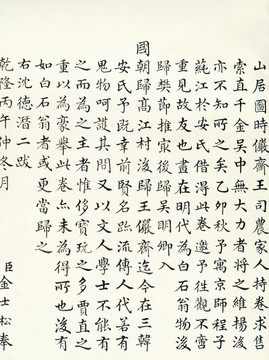 山居圖時儼齋王司農家人持卷求售
索直千金吳中無大力者將之維揚後
亦不知所之矣乙卯秋予寓京師程子
蒓江於安氏借得此卷邀予往觀不啻
重見故友也畫在明代為白石翁物後
歸樊節推家後歸吳明卿入
國朝歸高江村後歸王儼齋迄今在三韓
安氏予既幸前賢名跡流傳人代若有
鬼物呵護其間又以文人學士不能有
之而為之主者惟侈寶玩之多賈直之
重以為豪舉此卷亦未為得所也後有
如白石翁者或更當歸之
右沈德潛二跋
乾隆丙午仲冬月
臣金士松奉